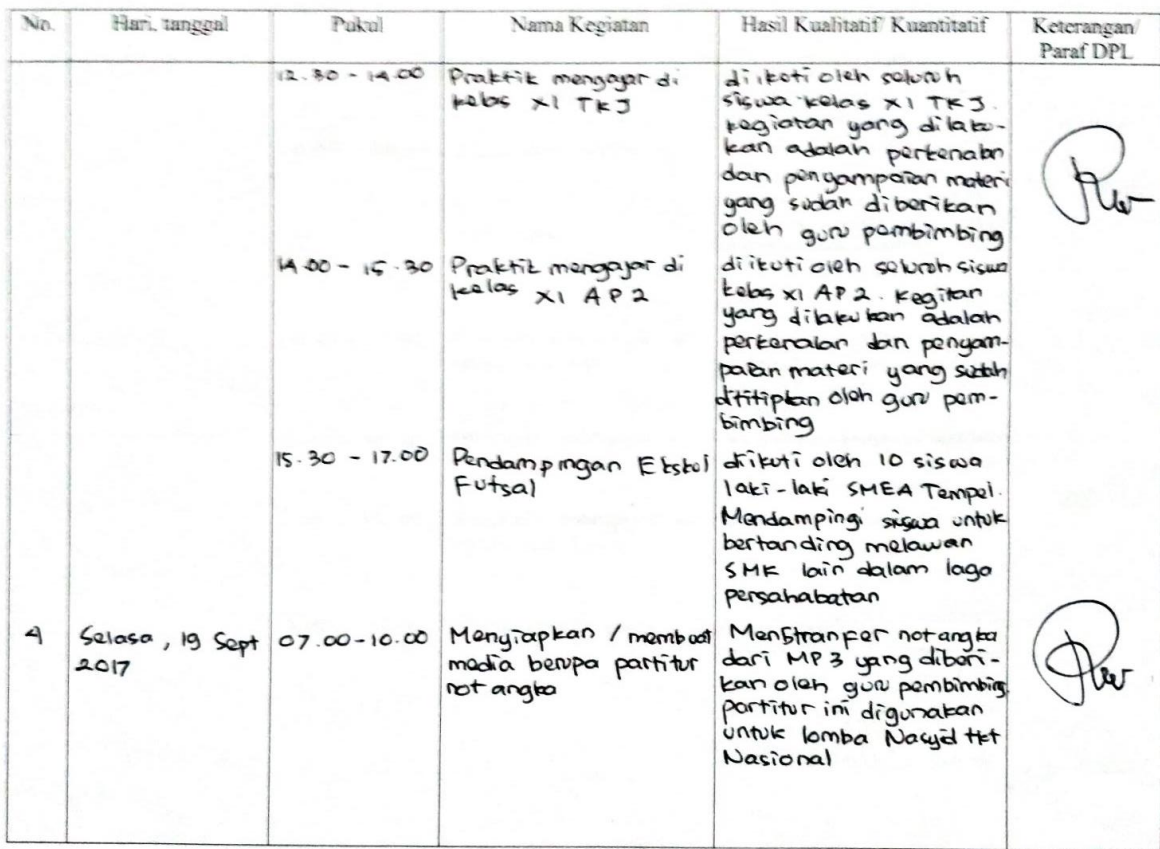 No. Hari, tanggal Pukul Nama Kegiatan Hasil Kualitatif/ Kuantitatif Keterangan/
Paraf DPL
12.30 - 14.00 Praktik mengajar di
kelas XI TKJ
diikuti oleh seluruh
siswa kelas XI TKJ.
kegiatan yang dilaku-
kan adalah perkenalan
dan penyampaian materi
yang sudah diberikan
oleh guru pembimbing
14.00 - 15.30 Praktik mengajar di
kelas XI AP 2
diikuti oleh seluruh siswa
kelas XI AP 2. kegitan
yang dilakukan adalah
perkenalan dan penyam-
paian materi yang sudah
dititipkan oleh guru pem-
bimbing
15.30 - 17.00 Pendampingan Ekskul
Futsal
diikuti oleh 10 siswa
laki-laki SMEA Tempel.
Mendampingi siswa untuk
bertanding melawan
SMK lain dalam laga
persahabatan
4 Selasa, 19 Sept
2017
07.00-10.00 Menyiapkan / membuat
media berupa partitur
not angka
not angka
dari MP3 yang diberi-
kan oleh guru pembimbing
partitur ini digunakan
untuk lomba Nasyid tkt
Nasional